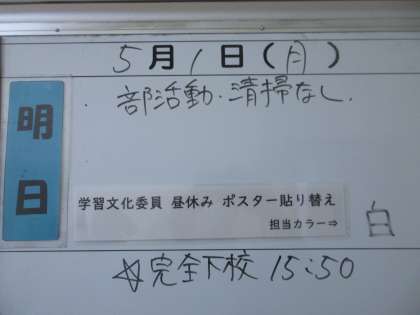 5月1日(月)
明日
・部活動・清掃なし.
学習文化委員 昼休み ポスター貼り替え
担当カラー⇒
白
☆完全下校 15:50